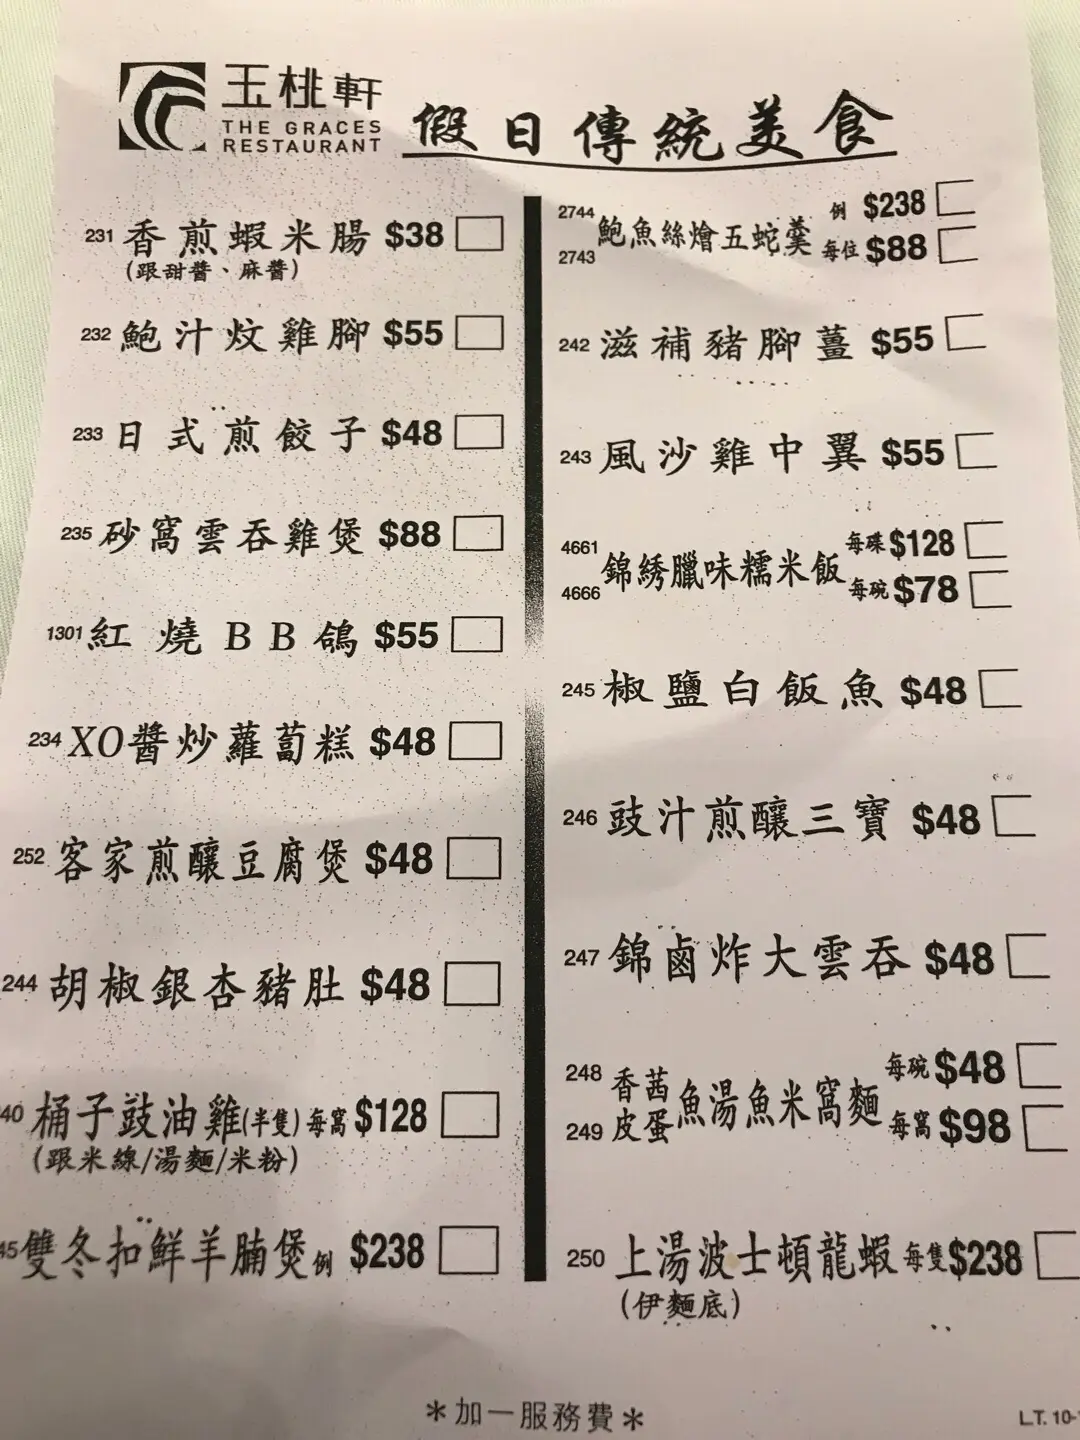 玉桃軒
THE GRACES
RESTAURANT
假日傳統美食
231 香煎蝦米腸 $38
(跟甜醬、麻醬)
232 鮑汁炆雞腳 $55
233 日式煎餃子 $48
235 砂窩雲吞雞煲 $88
1301 紅燒BB鴿 $55
234 XO醬炒蘿蔔糕 $48
252 客家煎釀豆腐煲 $48
244 胡椒銀杏豬肚 $48
40 桶子豉油雞(半隻)每窩 $128
(跟米線/湯麵/米粉)
45 雙冬扣鮮羊腩煲例 $238
2744 例 $238
鮑魚絲燴五蛇羹
2743 每位 $88
242 滋補豬腳薑 $55
243 風沙雞中翼 $55
4661 每碟 $128
錦綉臘味糯米飯
4666 每碗 $78
245 椒鹽白飯魚 $48
246 豉汁煎釀三寶 $48
247 錦鹵炸大雲吞 $48
248 香茜 每碗 $48
魚湯魚米窩麵
249 皮蛋 每窩 $98
250 上湯波士頓龍蝦 每隻 $238
(伊麵底)
*加一服務費*
L.T. 10-